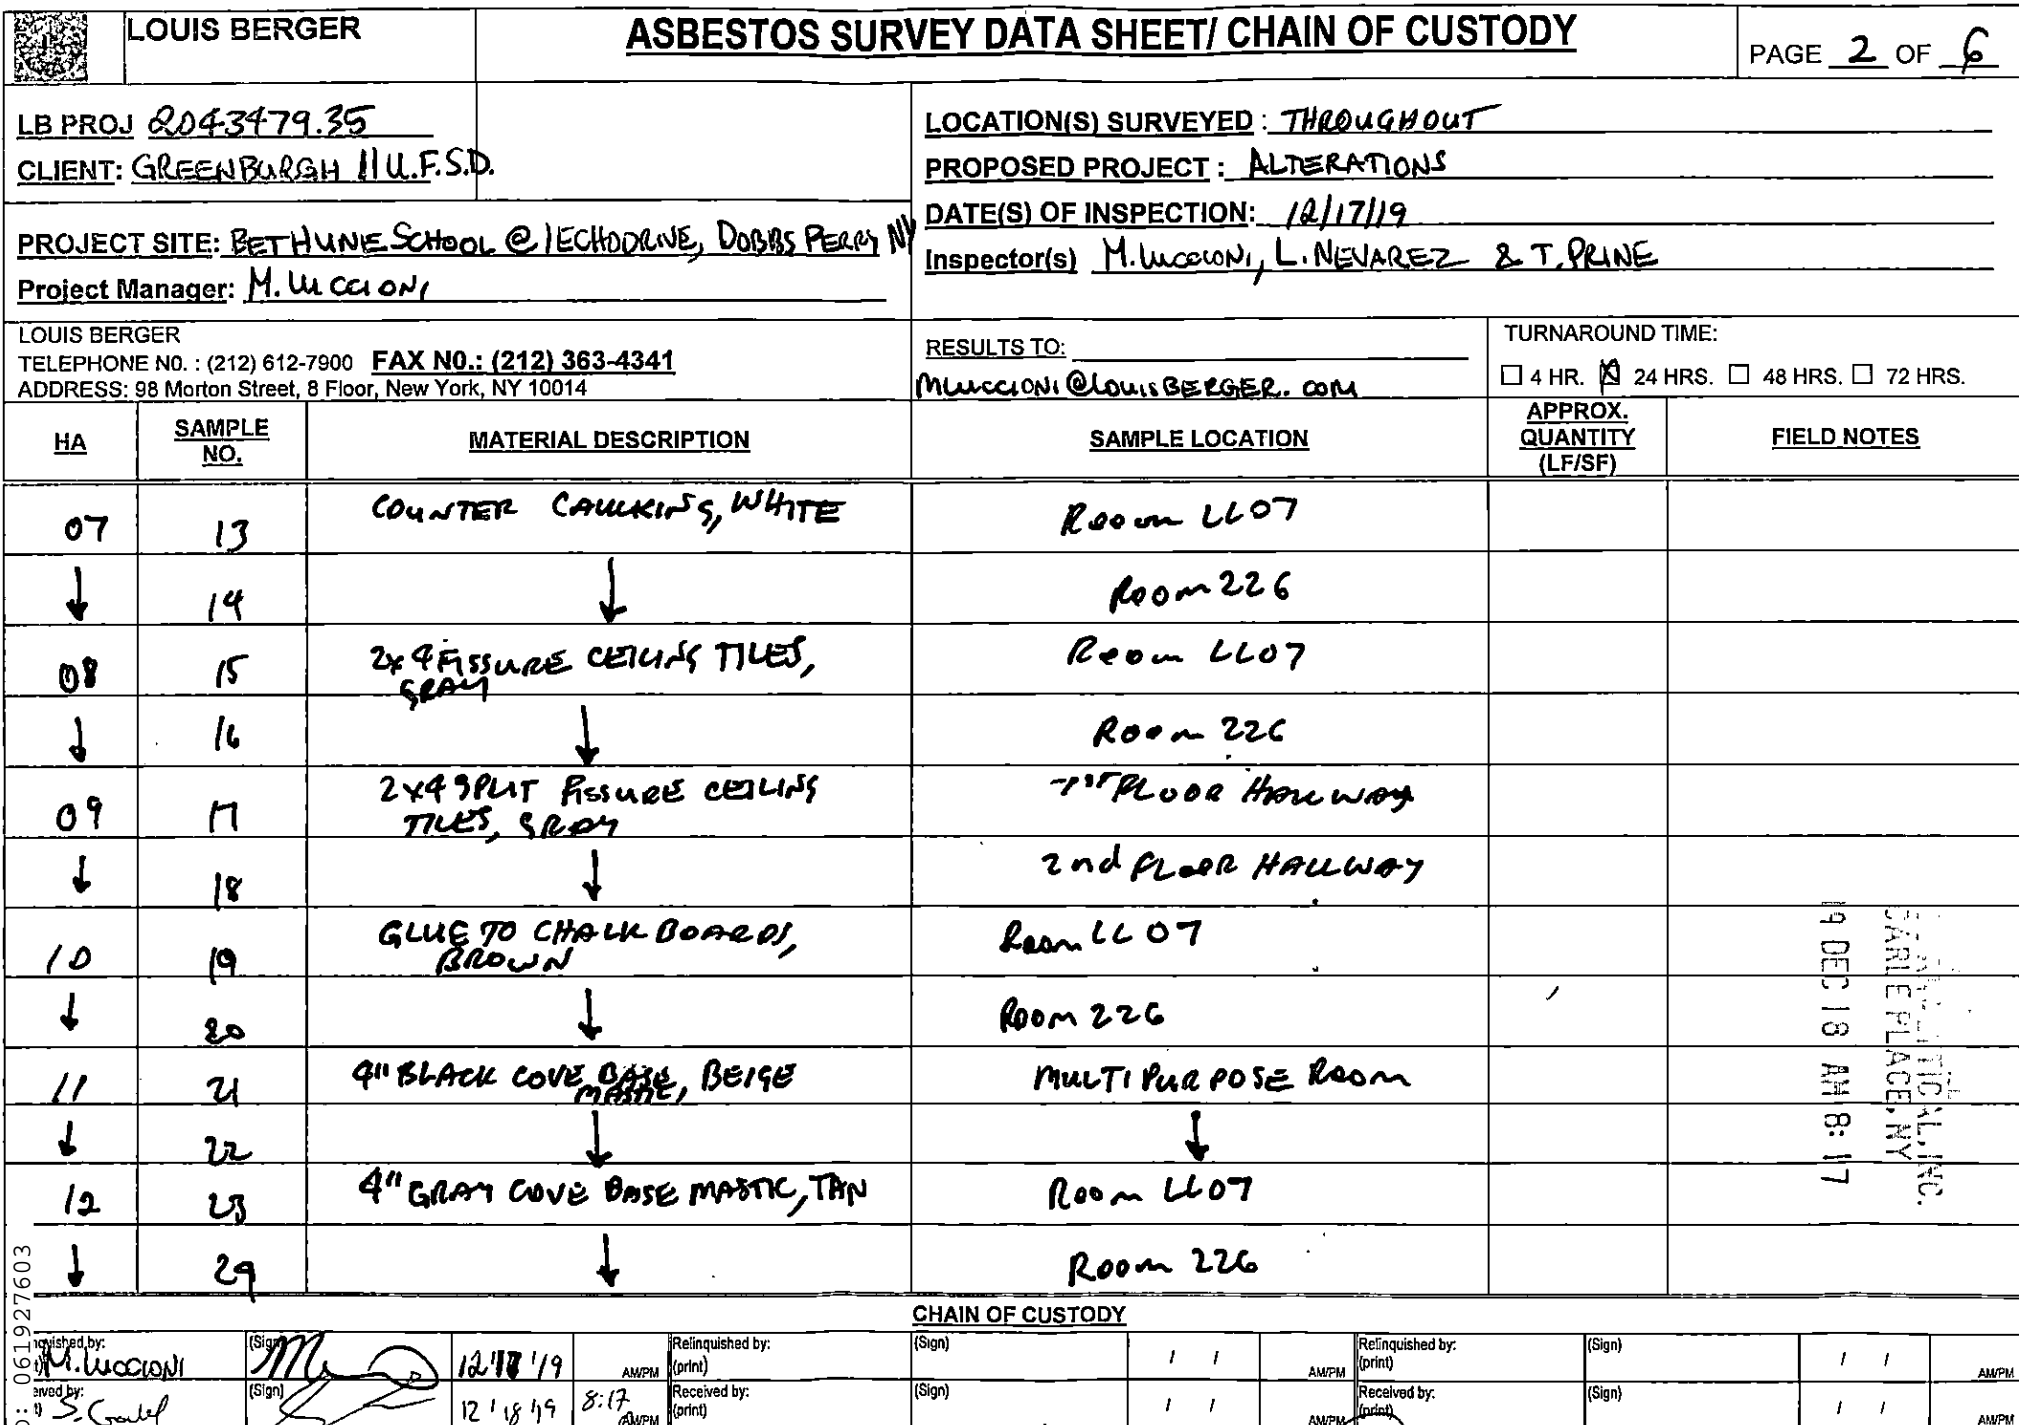 LOUIS BERGER
ASBESTOS SURVEY DATA SHEET/ CHAIN OF CUSTODY
PAGE 2 OF 6
LB PROJ 2043479.35
CLIENT: GREENBURGH 11 U.F.S.D.
PROJECT SITE: BETHUNE SCHOOL @ 1 ECHO DRIVE, DOBBS FERRY NY
Project Manager: M. LUCCIONI
LOCATION(S) SURVEYED : THROUGHOUT
PROPOSED PROJECT : ALTERATIONS
DATE(S) OF INSPECTION: 12/17/19
Inspector(s) M. LUCCIONI, L. NEVAREZ & T. PRINE
LOUIS BERGER
TELEPHONE N0. : (212) 612-7900 FAX N0.: (212) 363-4341
ADDRESS: 98 Morton Street, 8 Floor, New York, NY 10014
RESULTS TO:
MLUCCIONI@LOUISBERGER.COM
TURNAROUND TIME:
☐ 4 HR. ☒ 24 HRS. ☐ 48 HRS. ☐ 72 HRS.
HA SAMPLE NO. MATERIAL DESCRIPTION SAMPLE LOCATION APPROX. QUANTITY (LF/SF) FIELD NOTES
07 13 COUNTER CAULKING, WHITE Room LL07
↓ 14 ↓ Room 226
08 15 2x4 FISSURE CEILING TILES, GRAY Room LL07
↓ 16 ↓ Room 226
09 17 2x4 SPLIT FISSURE CEILING TILES, GRAY 1ST FLOOR HALLWAY
↓ 18 ↓ 2nd FLOOR HALLWAY
10 19 GLUE TO CHALK BOARDS, BROWN Room LL07
↓ 20 ↓ Room 226
11 21 4" BLACK COVE BASE MASTIC, BEIGE MULTIPURPOSE ROOM
↓ 22 ↓ ↓
12 23 4" GRAY COVE BASE MASTIC, TAN Room LL07
↓ 24 ↓ Room 226
CARLE PLACE, NY
19 DEC 18 AM 8:17
: 061927603
CHAIN OF CUSTODY
M. LUCCIONI (Sign) 12/17/19 AM/PM Relinquished by: (print) (Sign) / / AM/PM Relinquished by: (print) (Sign) / / AM/PM
(Sign) 12/18/19 8:17 AM/PM Received by: (print) (Sign) / / AM/PM Received by: (print) (Sign) / / AM/PM